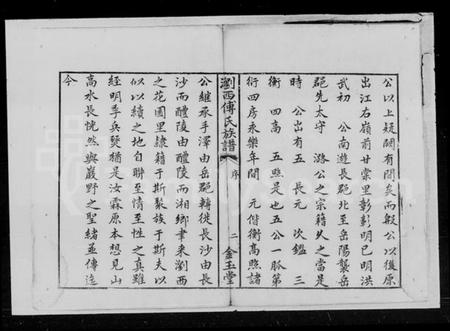 公以上疑闕有間矣而毅公以後原
出江右嶺前甘棠里彰彰明已明洪
武初　公南遊長郡北至岳陽襲岳
郡先太守　潞公之宗籍久之當是
時　公出有五　長元　次鑑　三
衡　四高　五照是也五公一脈第
衍四房永樂年間　元偕衡高照諸
瀏西傅氏族譜　序　二　金玉堂
公繼承手澤由岳郡轉徙長沙由長
沙而醴陵由醴陵而湘鄉聿來瀏西
之花園里隸籍于斯聚族于斯夫以
似以續之地自聯至情至性之真雖
經明季兵燹猶是汝霖原本想見山
高水長恍然與巖野之聖緒並傳迄
今